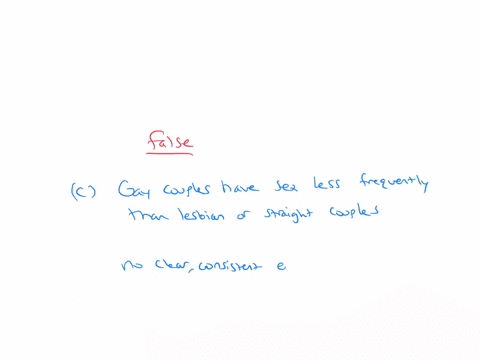 false
(c) Gay couples have sex less frequently
than lesbian or straight couples
no clear, consistent e